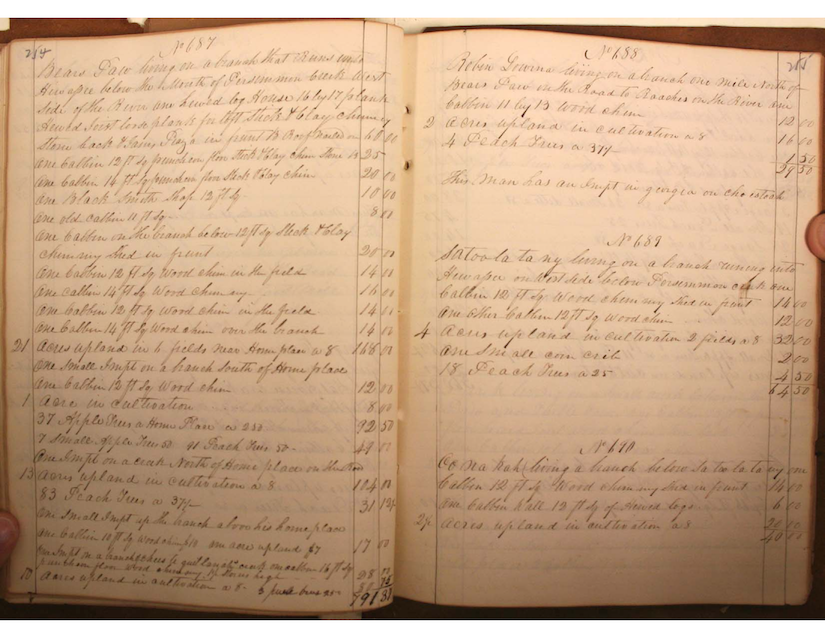 No 687
Bears Paw living on a branch that runs into
Hewassee below the Mouth of Persemmon Creek West
Side of the River one hewed log House 16 by 17 plank
Hewed Joist loose plank for loft Stick & Clay chimney
Stone back & Jams in front & Roof Nailed on 60 00
one Cabbin 12 ft Sq puncheon floor Stick & Clay Chim 25
one Cabbin 14 ft Sq puncheon floor Stick & Clay chim 20 00
one Black Smith Shop 12 ft Sq 10 00
one old cabbin 11 ft Sq 8 00
one Cabbin on the branch below 12 ft Sq Stick & Clay
chimny Shed in frunt 20 00
one Cabbin 12 ft Sq Wood chim in the field 14 00
one cabbin 14 ft Sq Wood chimny 16 00
one Cabbin 12 ft Sq Wood chim in the field 14 00
one Cabbin 14 ft Sq Wood chim over the branch 14 00
21 Acres upland in 6 fields near Home place @ 8 168 00
one Small Impt on a branch South of Home place
one Cabbin 12 ft Sq Wood chim 12 00
1 Acre in Cultivation 8 00
37 Apple Trees a Home Place a 250 92 50
7 Small Apple Trees 50 91 Peach Trees 50 49 00
one Impt on a creek North of Home place on the
13 Acres upland in cultivation a 8 104 00
83 Peach Trees a 37½ 31 12½
one Small Impt up the branch above his home place
one Cabbin 10 ft Sq wood chim $10 one acre upland $7 17 00
one Impt on a branch one cabbin 16 ft Sq
puncheon floor Wood chimny high 28 00
10 Acres upland in cultivation a 8 3 peach trees 25 80 75
791 31
No 688
Robin Downa living on a branch one mile North of
Bears Paw on the Road to Roaches on the River one
Cabbin 11 by 13 Wood chim 12 00
2 Acres upland in cultivation a 8 16 00
4 Peach Trees a 37½ 1 50
29 50
This Man has an Impt in georgia on
No 689
Satoo la ta ny living on a branch runing into
Hewassee on West side below Persemmon creek one
Cabbin 12 ft Sq Wood chimny Shed in frunt 14 00
one other Cabbin 12 ft Sq Wood chim 12 00
4 Acres upland in cultivation 2 fields a 8 32 00
one Small corn crib 2 00
18 Peach Trees a 25 4 50
64 50
No 690
Co na hah living a branch below Sa too la ta ny one
Cabbin 12 ft Sq Wood chimny Shed in frunt 14 00
one Cabbin 12 ft Sq of hewed logs 6 00
2½ Acres upland in cultivation a 8 20 00
40 00